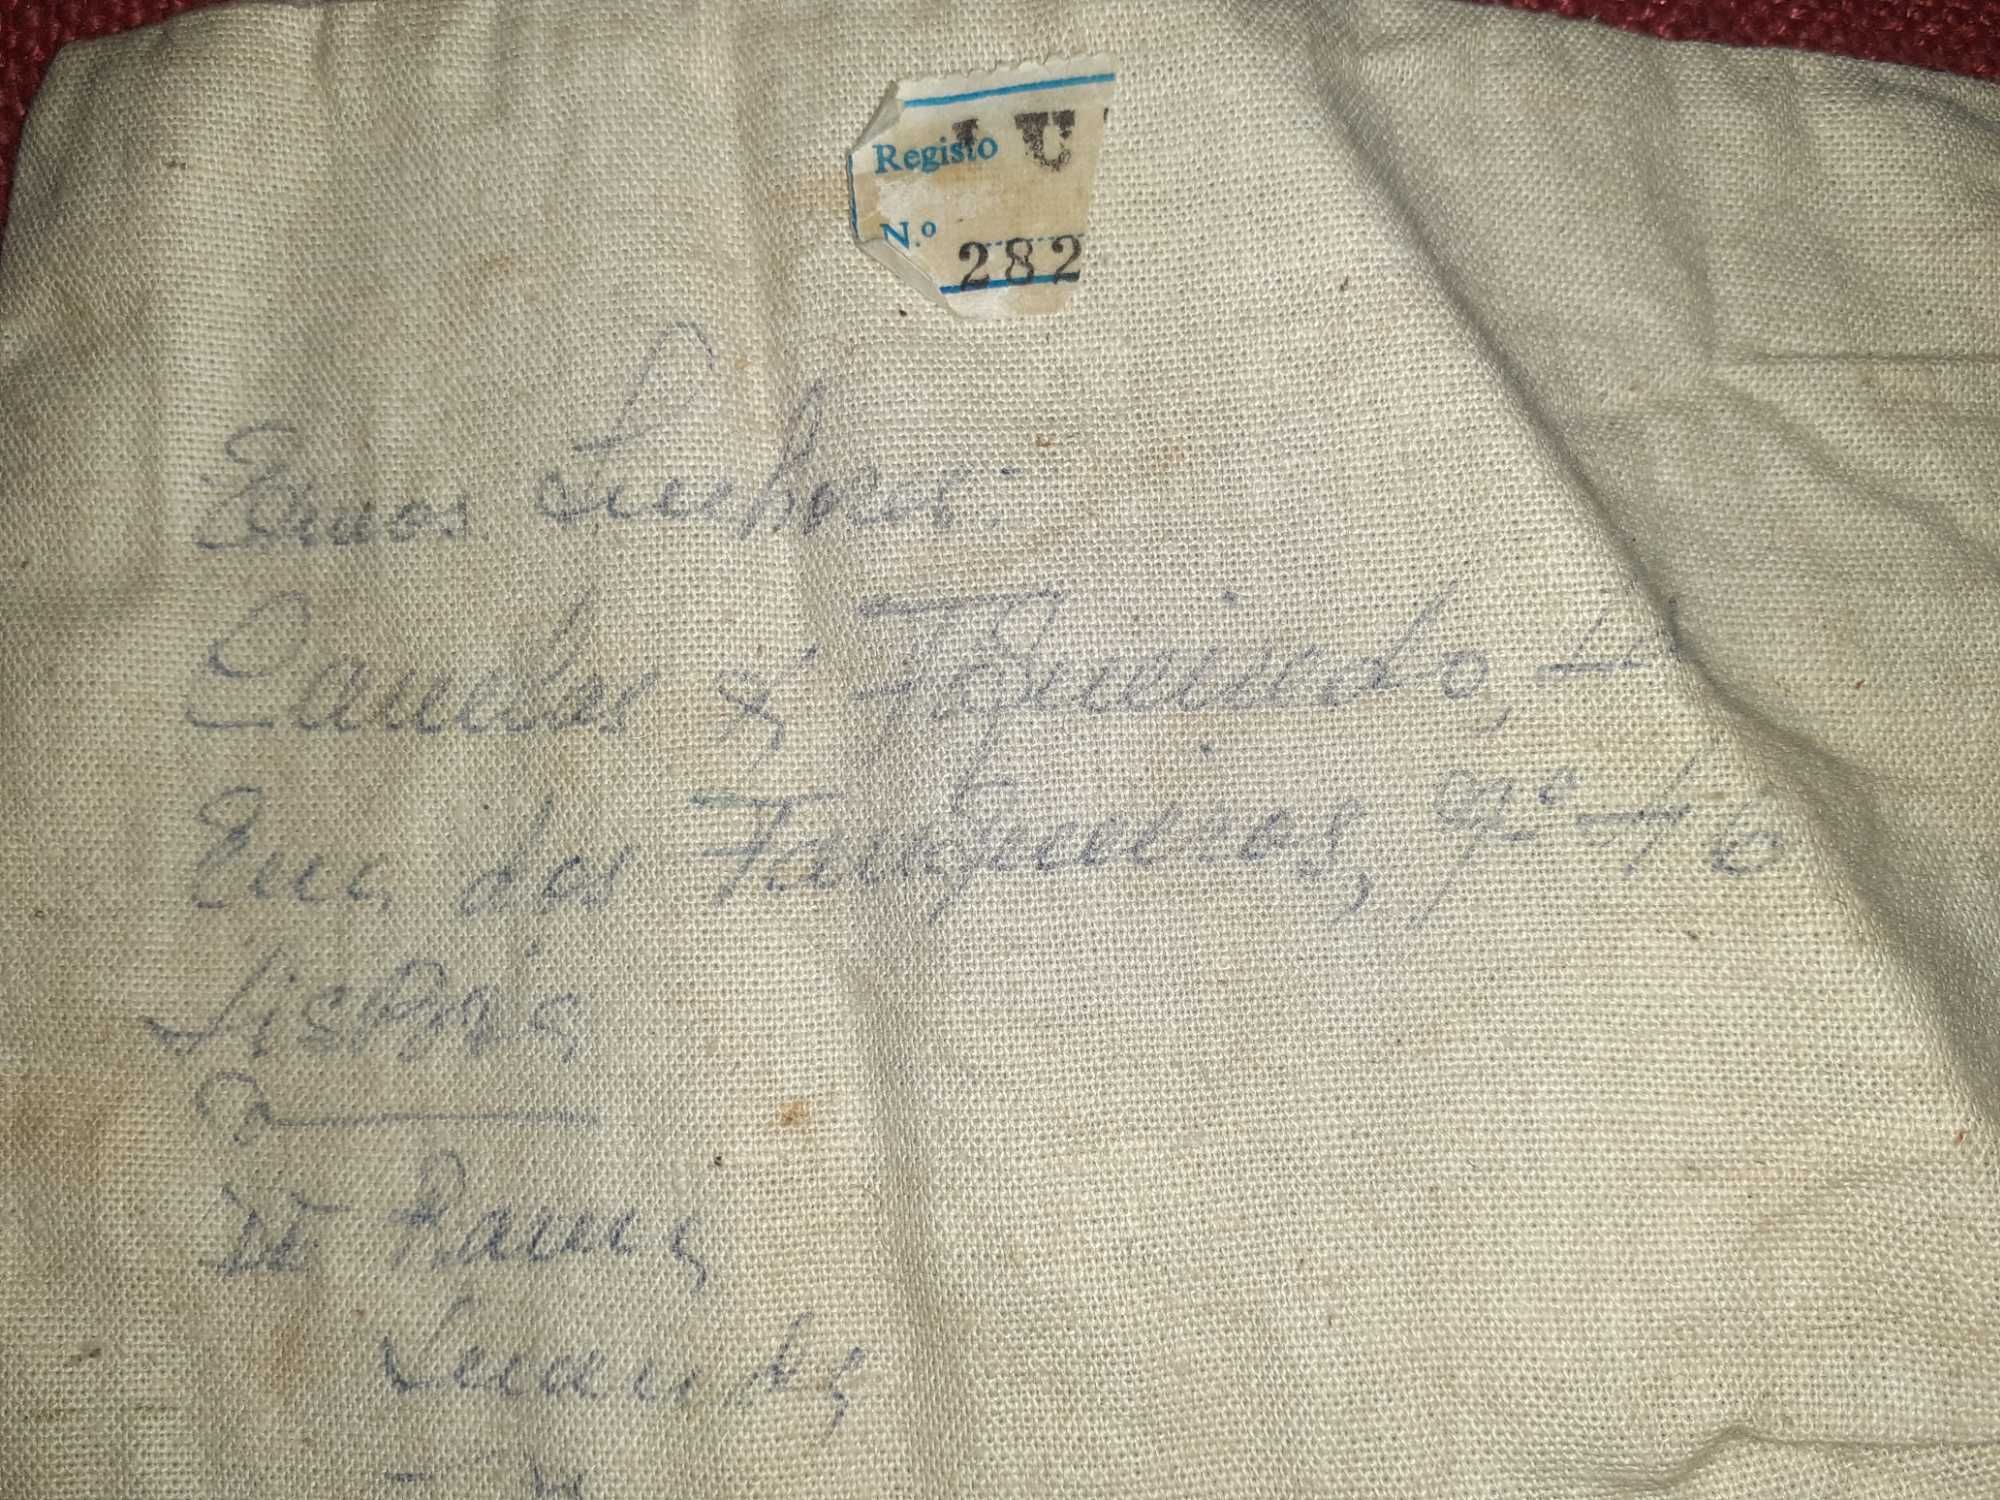 Registo LU
N.º 282
Exmos. Senhores:
Candos & Figueiredo, L
Rua dos Fanqueiros, nº 10
Lisboa
De
Luanda